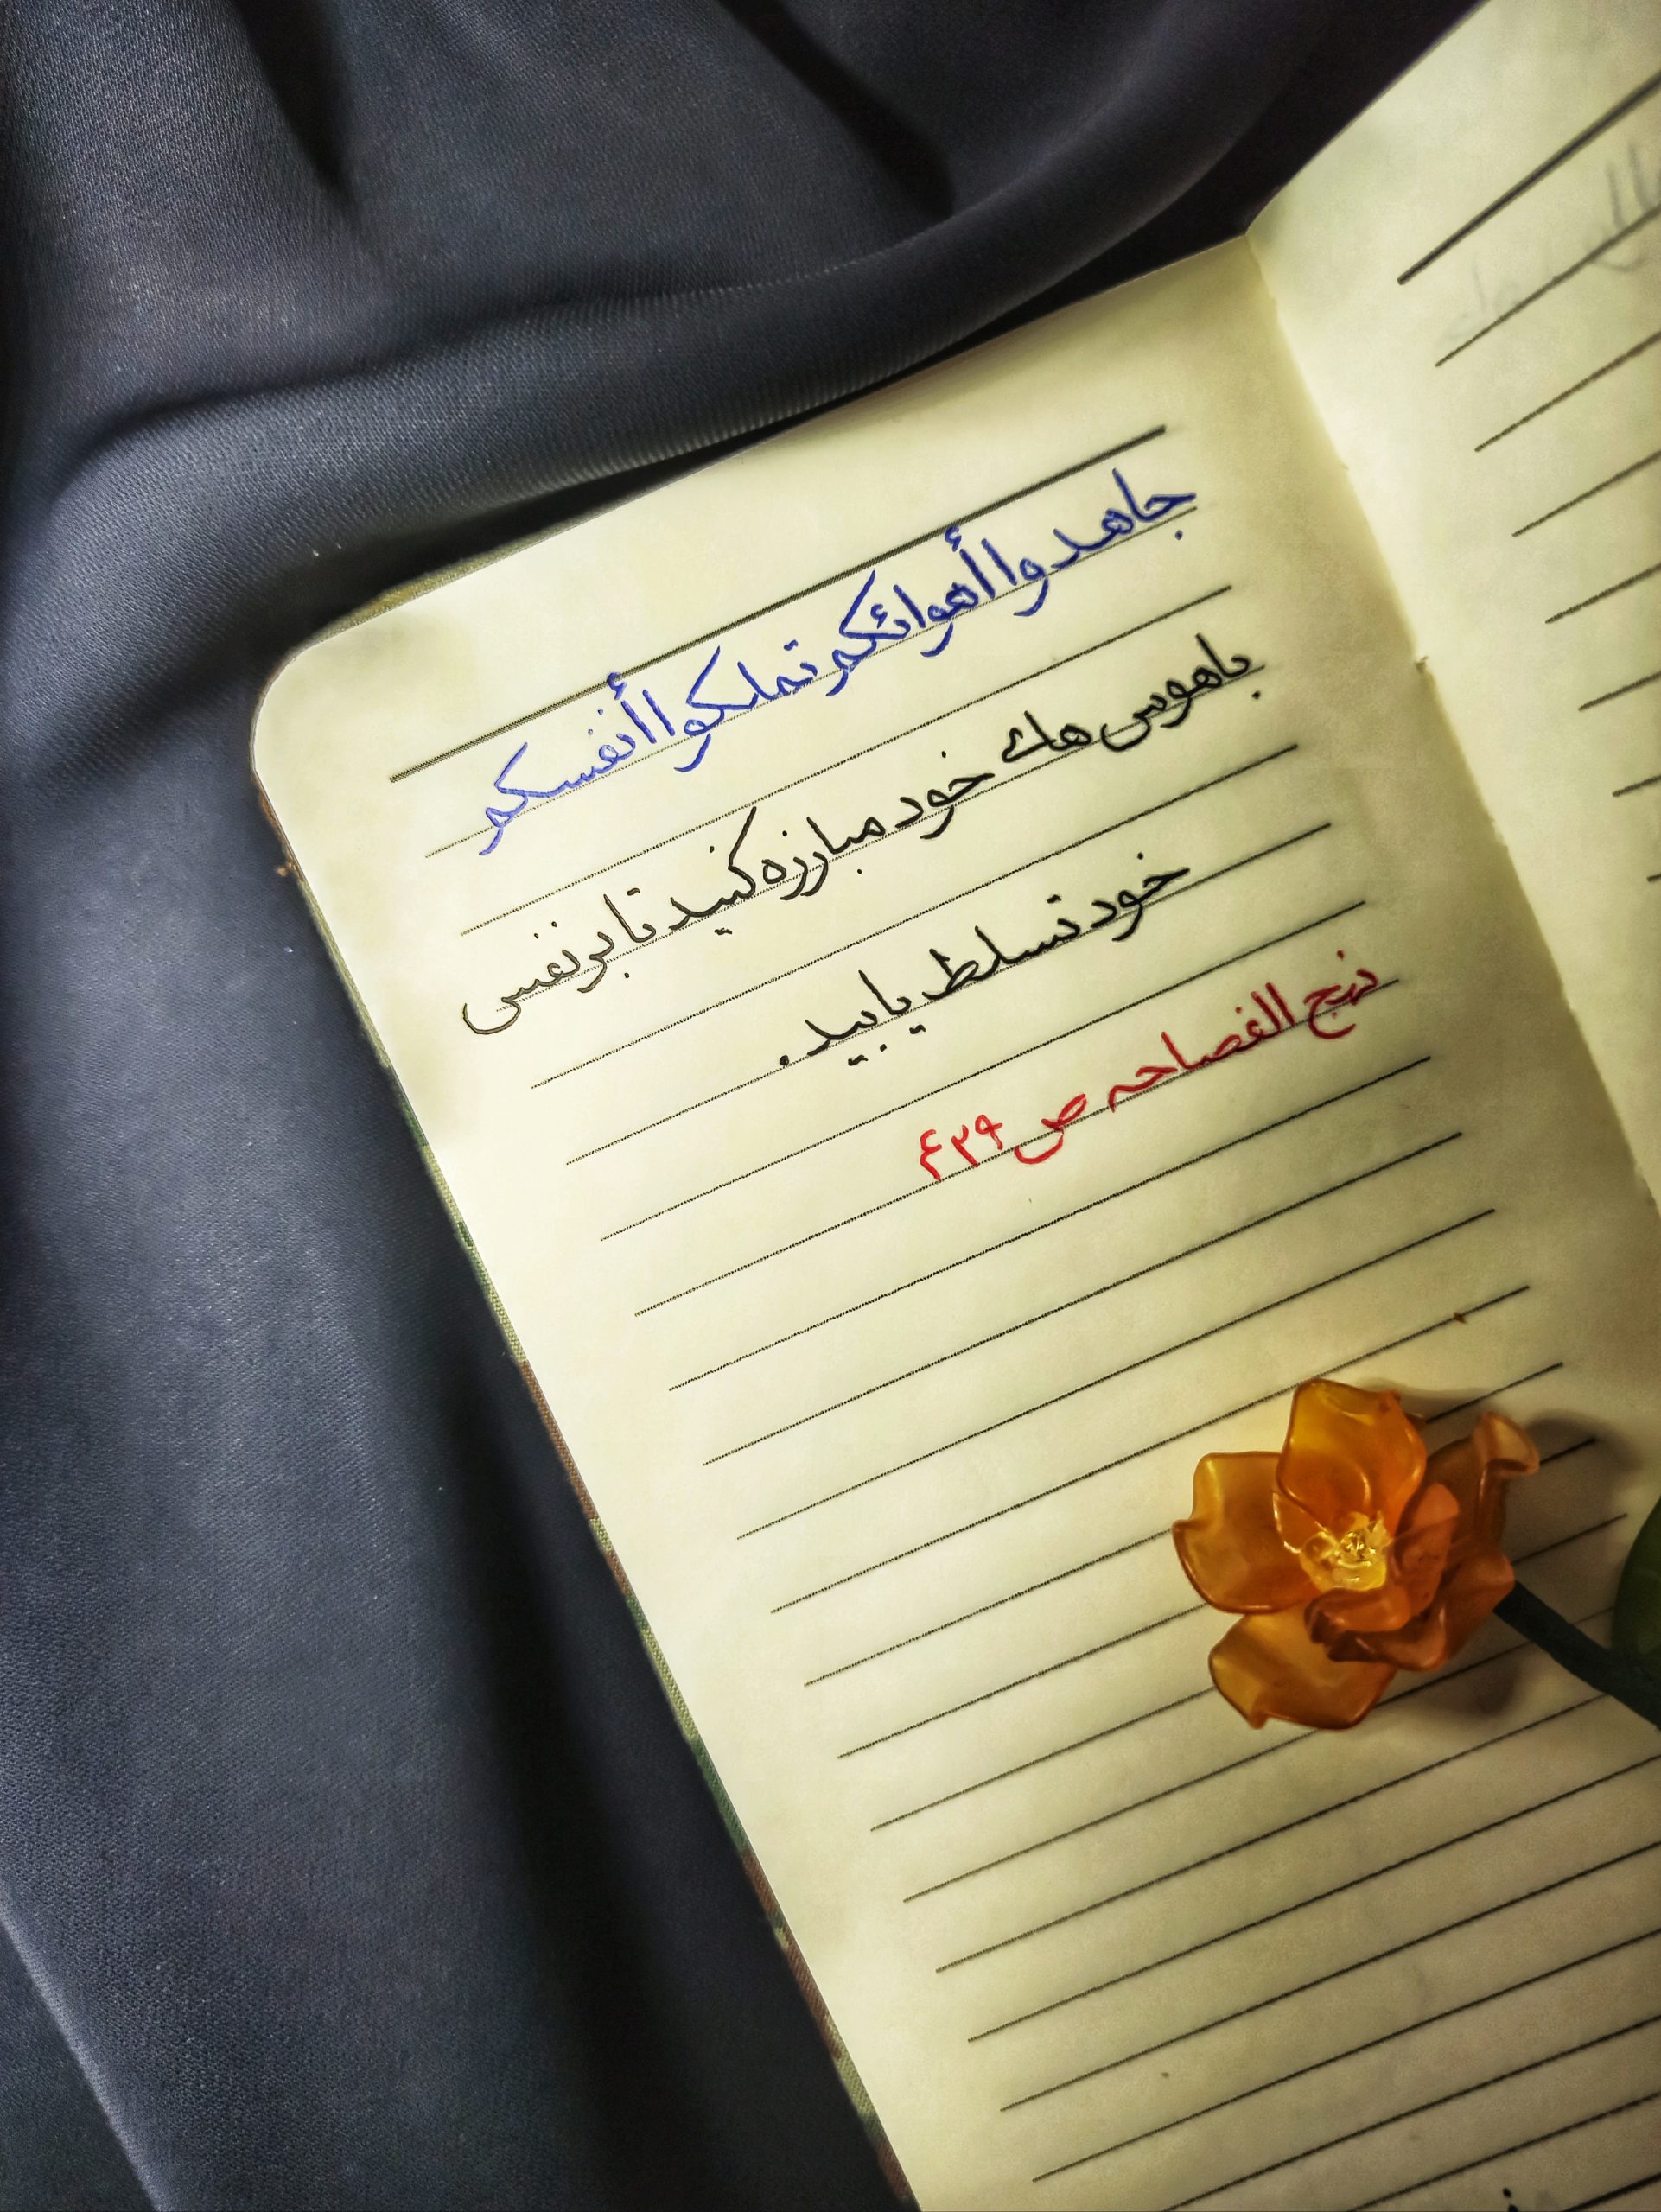 جاهدوا أهوائكم تملكوا أنفسكم
با هوس هاے خود مبارزه کنید تا بر نفس
خود تسلط یابید.
نهج الفصاحه ص ۴۲۹